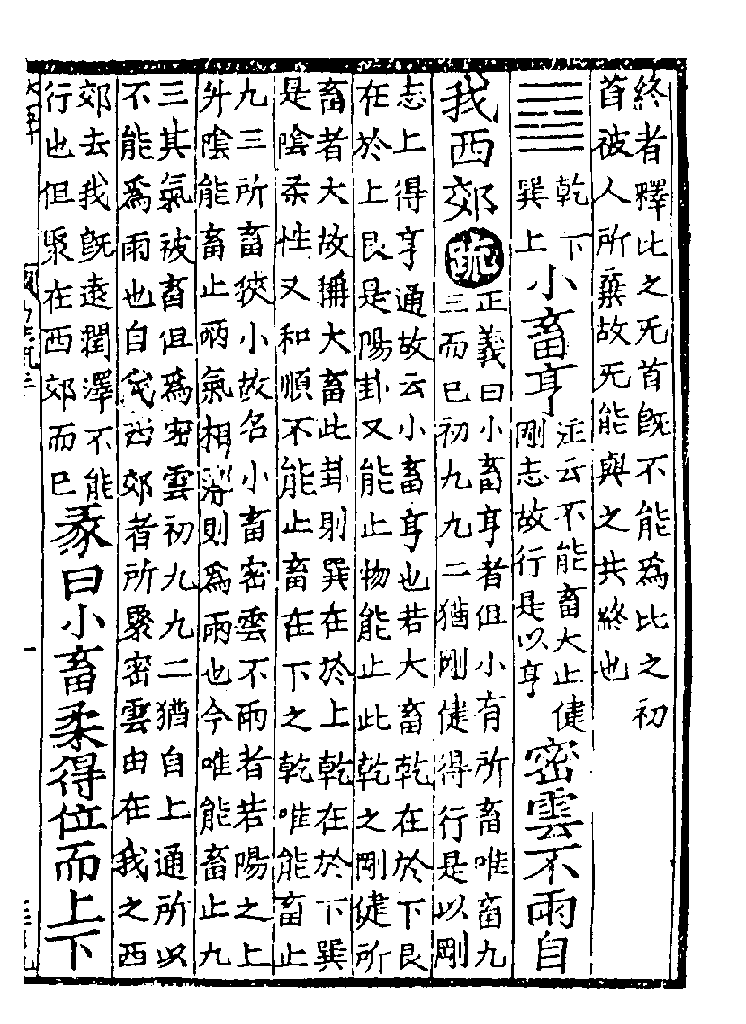 終者釋此之无首既不能為比之初
首被人所棄故无能與之共終也
䷈
乾下
巽上
小畜亨
注云不能畜大止健
剛志故行是以亨
密雲不雨自
我西郊
疏
正義曰小畜亨者但小有所畜唯畜九
三而已初九九二猶剛健得行是以剛
志上得亨通故云小畜亨也若大畜乾在於下艮
在於上艮是陽卦又能止物能止此乾之剛健所
畜者大故稱大畜此卦則巽在於上乾在於下巽
是陰柔性又和順不能止畜在下之乾唯能畜止
九三所畜狹小故名小畜密雲不雨者若陽之上
升陰能畜止兩氣相薄則為雨也今唯能畜止九
三其氣被畜但為密雲初九九二猶自上通所以
不能為雨也自我西郊者所聚密雲由在我之西
郊去我既遠潤澤不能
行也但聚在西郊而已
彖曰小畜柔得位而上下